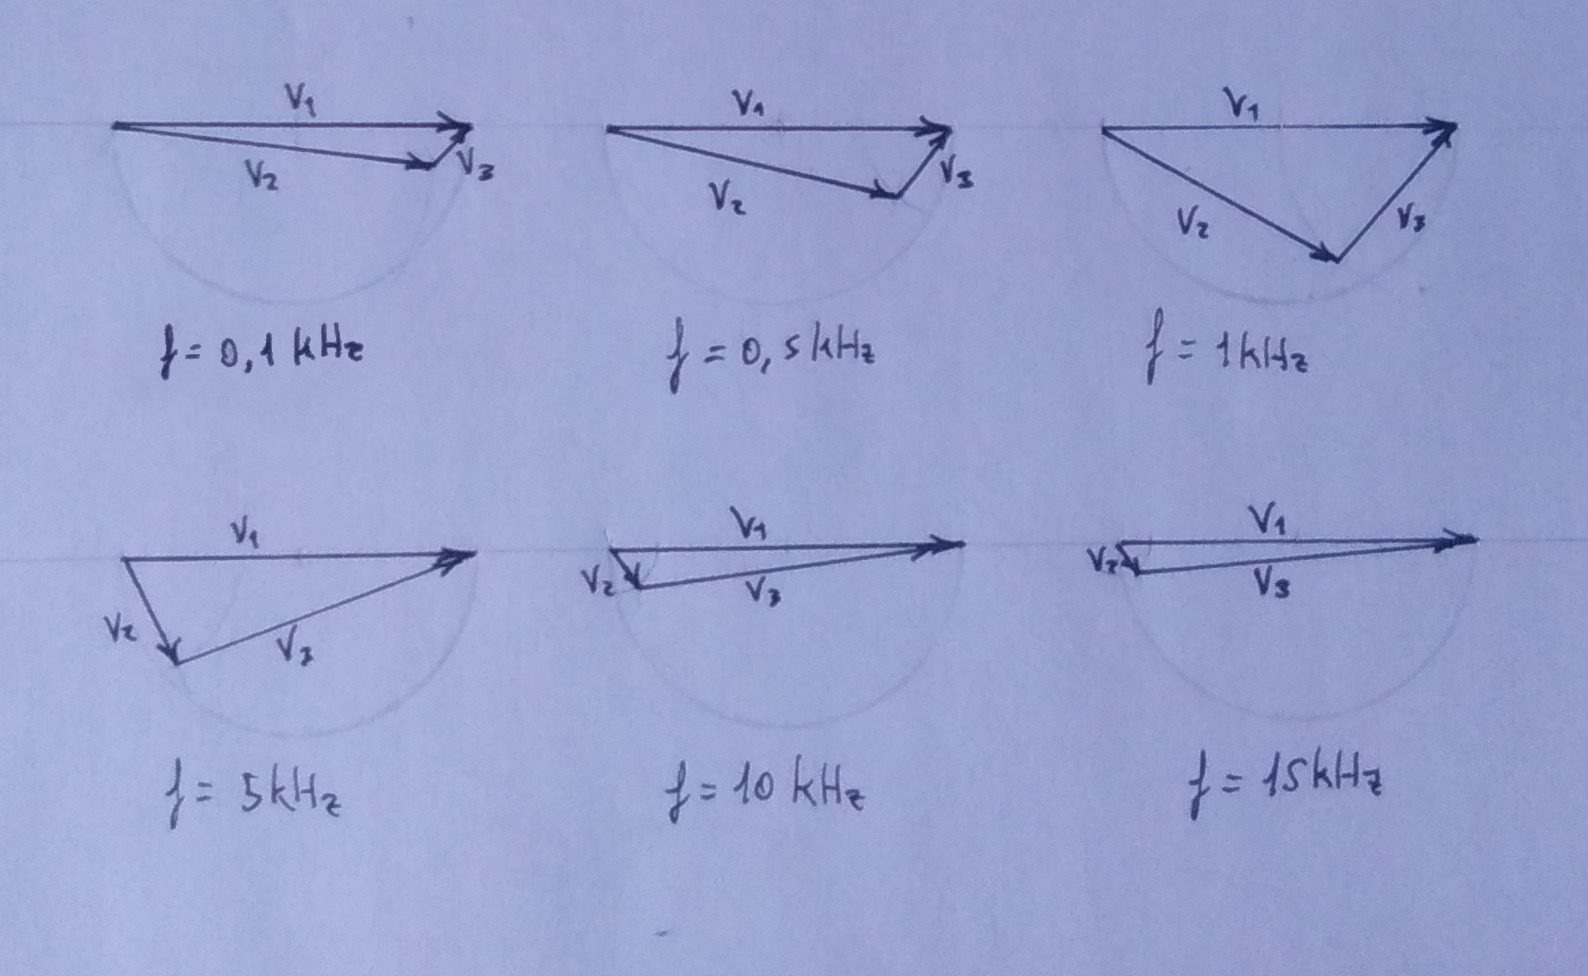 V₁
V₂
V₃
f = 0,1 kHz
V₁
V₂
V₃
f = 0,5 kHz
V₁
V₂
V₃
f = 1 kHz
V₁
V₂
V₃
f = 5 kHz
V₁
V₂
V₃
f = 10 kHz
V₁
V₂
V₃
f = 15 kHz